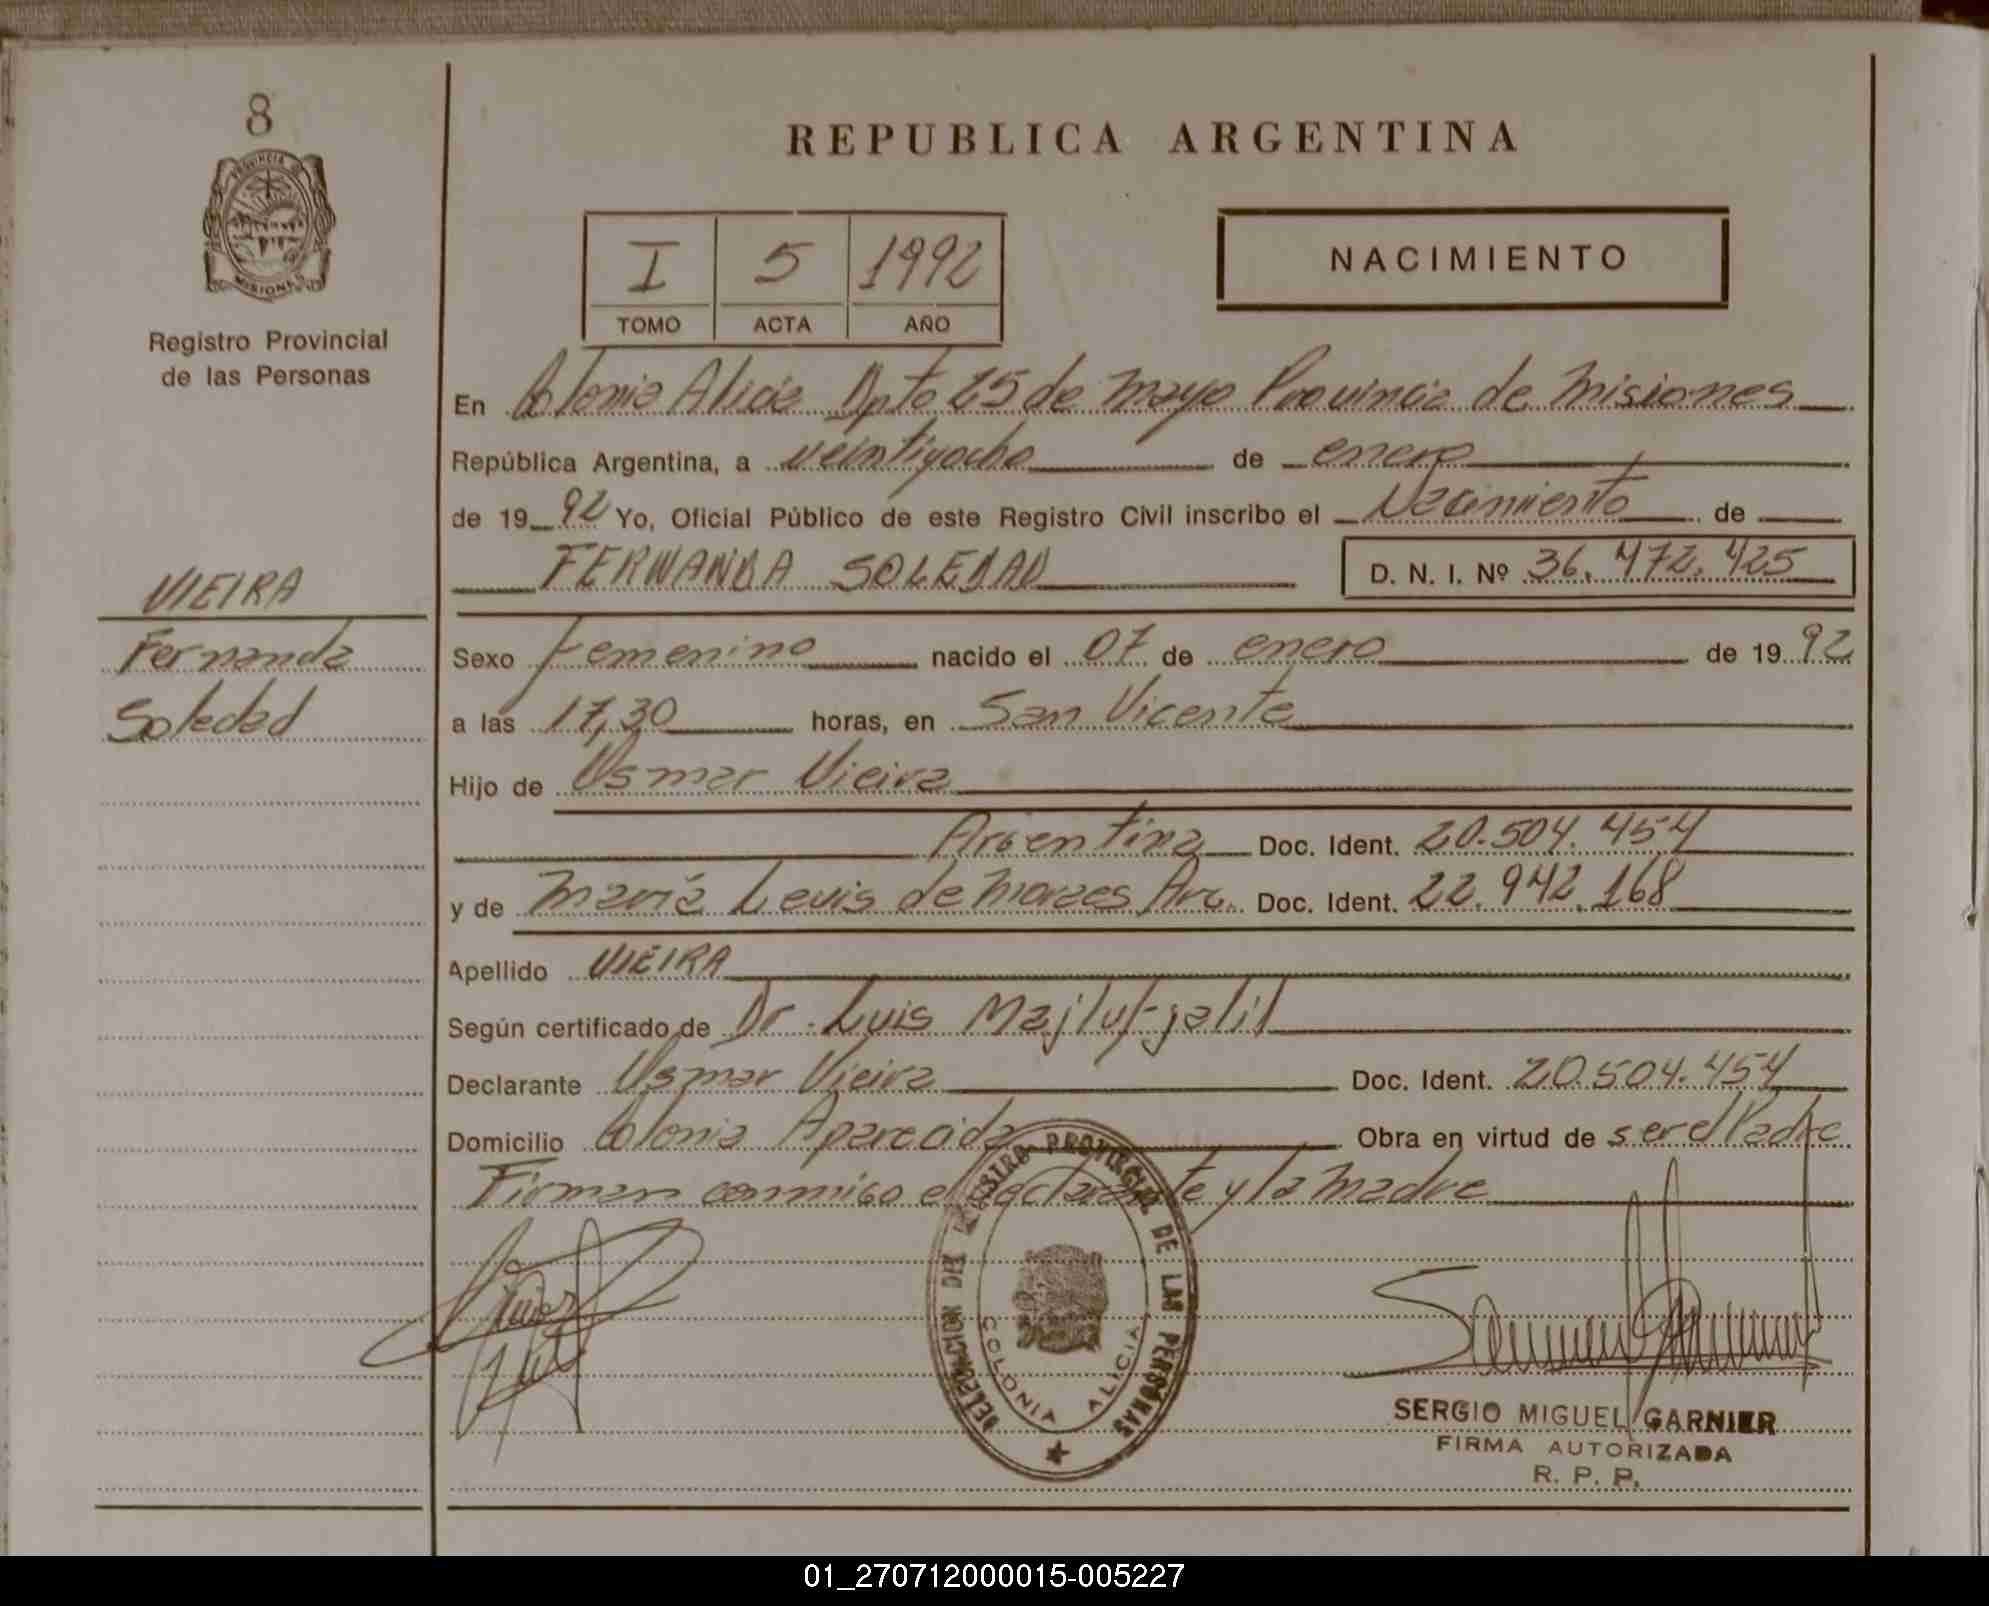 8
PROVINCIA DE
MISIONES
Registro Provincial
de las Personas
VIEIRA
Fernanda
Soledad
REPUBLICA ARGENTINA
I 5 1992
TOMO ACTA AÑO
NACIMIENTO
En Colonia Alicia Dpto 25 de Mayo Provincia de Misiones
República Argentina, a veintiyocho de enero
de 19 92 Yo, Oficial Público de este Registro Civil inscribo el Nacimiento de
FERNANDA SOLEDAD D. N. I. Nº 36.472.425
Sexo Femenino nacido el 07 de enero de 19 92
a las 17,30 horas, en San Vicente
Hijo de Osmar Vieira
Argentina Doc. Ident. 20.504.454
y de María Levis de Moraes Arg. Doc. Ident. 22.942.168
Apellido VIEIRA
Según certificado de Dr. Luis Majluf-jalil
Declarante Osmar Vieira Doc. Ident. 20.504.454
Domicilio Colonia Aparecida Obra en virtud de ser el Padre
Firman conmigo el declarante y la Madre
DELEGACION DEL REGISTRO PROVINCIAL DE LAS PERSONAS
COLONIA ALICIA
SERGIO MIGUEL GARNIER
FIRMA AUTORIZADA
R. P. P.
01_270712000015-005227